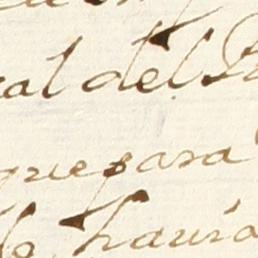 al del
que para
de havia